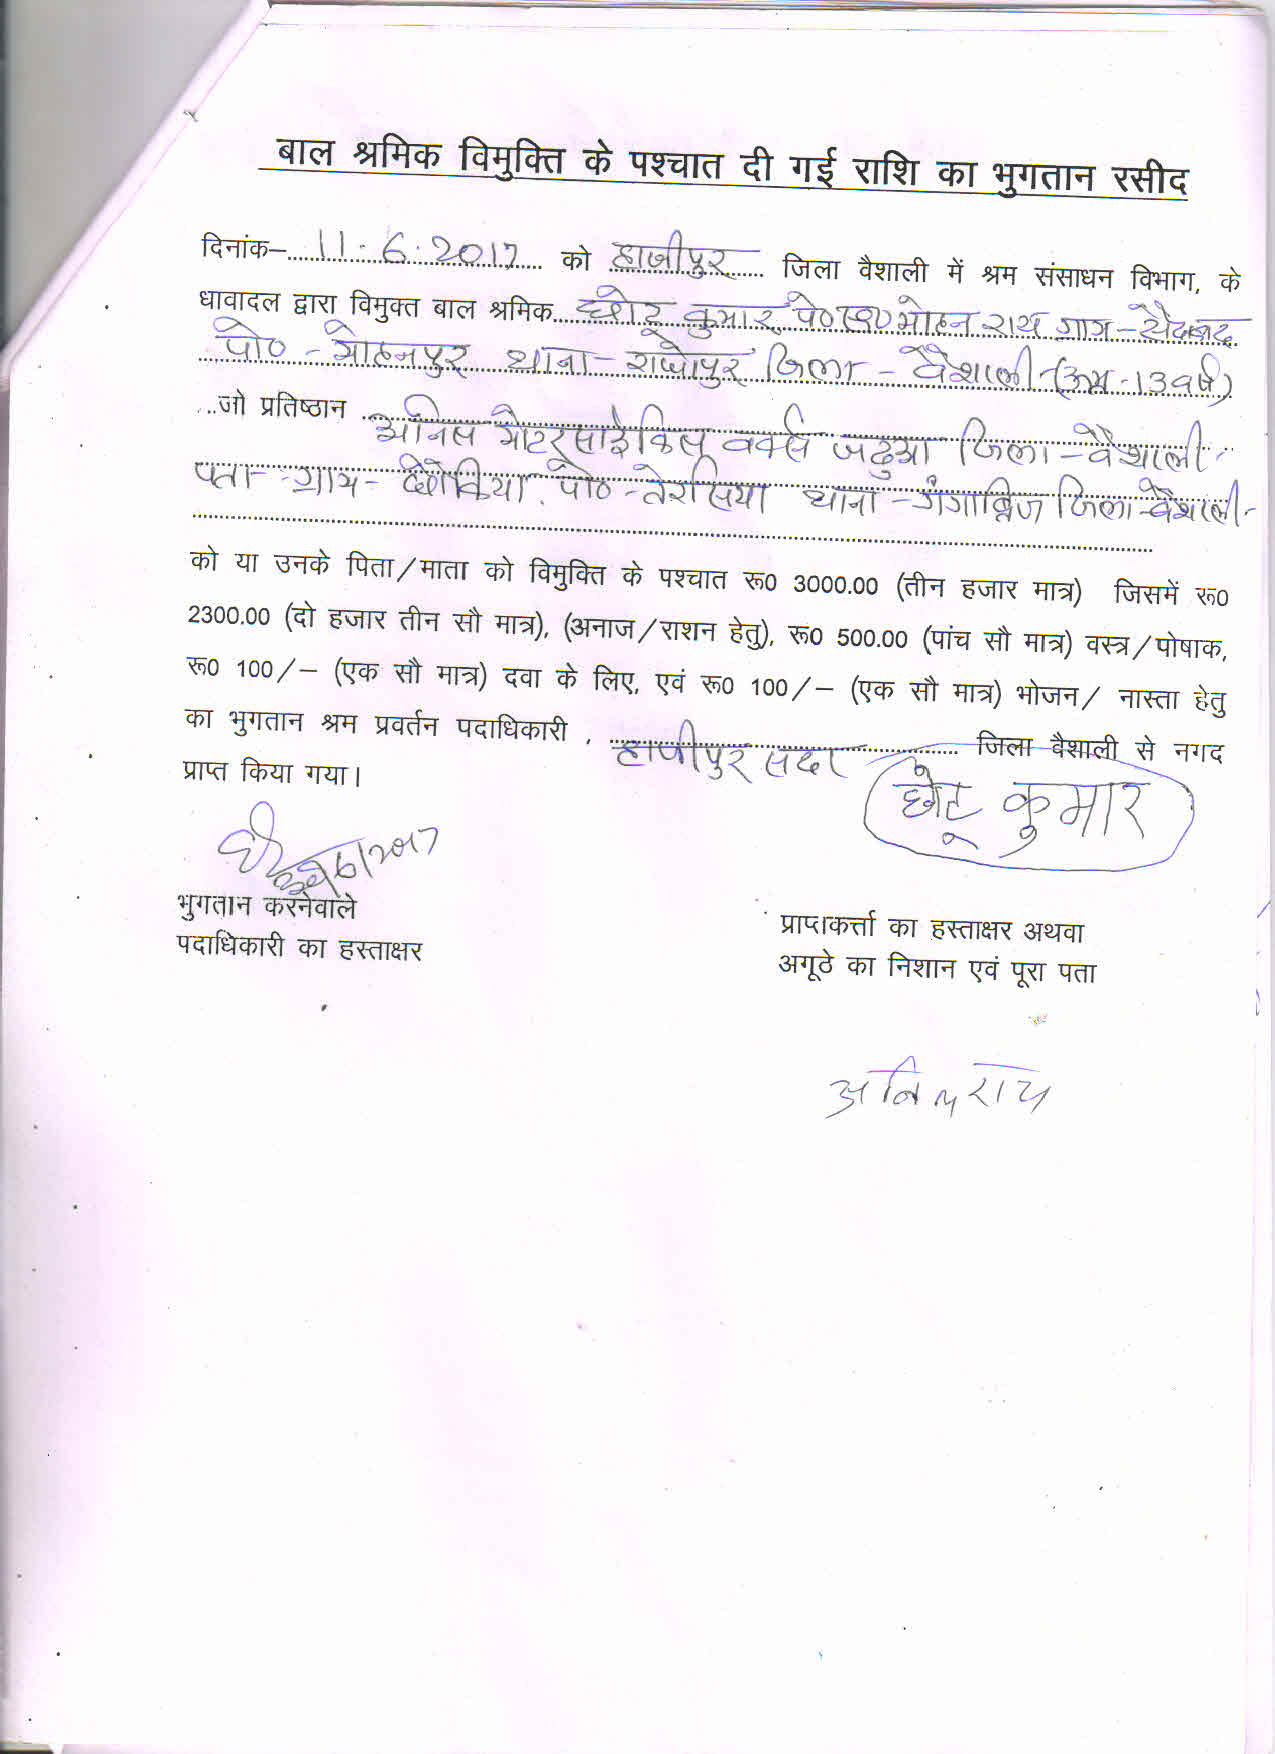 बाल श्रमिक विमुक्ति के पश्चात दी गई राशि का भुगतान रसीद
दिनांक– 11.6.2017 को हाजीपुर जिला वैशाली में श्रम संसाधन विभाग, के
धावादल द्वारा विमुक्त बाल श्रमिक छोटू कुमार, पे० स्व० मोहन राय ग्राम–सैदाबाद
पो० – मोहनपुर थाना – राघोपुर जिला – वैशाली (उम्र-13 वर्ष)
जो प्रतिष्ठान
अनिल मोटरसाईकिल वर्क्स जढुआ जिला – वैशाली
पता – ग्राम – पो० – तेरसिया थाना – गंगाब्रिज जिला – वैशाली
को या उनके पिता/माता को विमुक्ति के पश्चात रू0 3000.00 (तीन हजार मात्र) जिसमें रू0
2300.00 (दो हजार तीन सौ मात्र), (अनाज/राशन हेतु), रू0 500.00 (पांच सौ मात्र) वस्त्र/पोषाक,
रू0 100/– (एक सौ मात्र) दवा के लिए, एवं रू0 100/– (एक सौ मात्र) भोजन/ नास्ता हेतु
का भुगतान श्रम प्रवर्तन पदाधिकारी , हाजीपुर सदर जिला वैशाली से नगद
प्राप्त किया गया।
छोटू कुमार
6/2017
भुगतान करनेवाले
पदाधिकारी का हस्ताक्षर
प्राप्तकर्त्ता का हस्ताक्षर अथवा
अगूठे का निशान एवं पूरा पता
अनिल राय